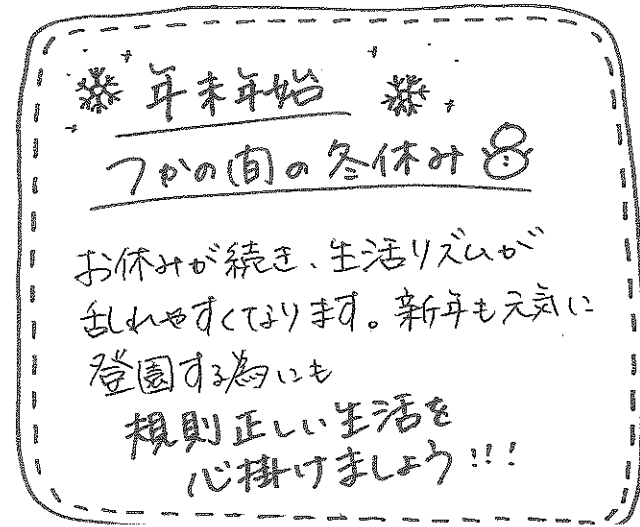 年末年始
つかの間の冬休み
お休みが続き、生活リズムが
乱れやすくなります。新年も元気に
登園する為にも
規則正しい生活を
心掛けましょう!!!